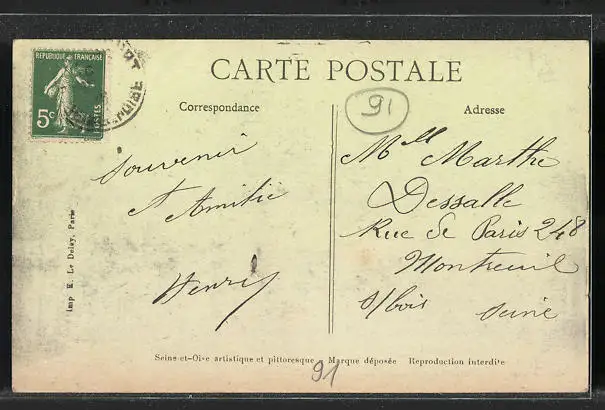 RÉPUBLIQUE FRANÇAISE
5c
POSTES
CARTE POSTALE
Correspondance
91
Adresse
Souvenir
d'Amitié
Henry
Mlle Marthe
Dessalle
Rue de Paris 248
Montreuil
s/bois Seine
Imp E. Le Deley, Paris
Seine-et-Oise artistique et pittoresque Marque déposée Reproduction interdite
91